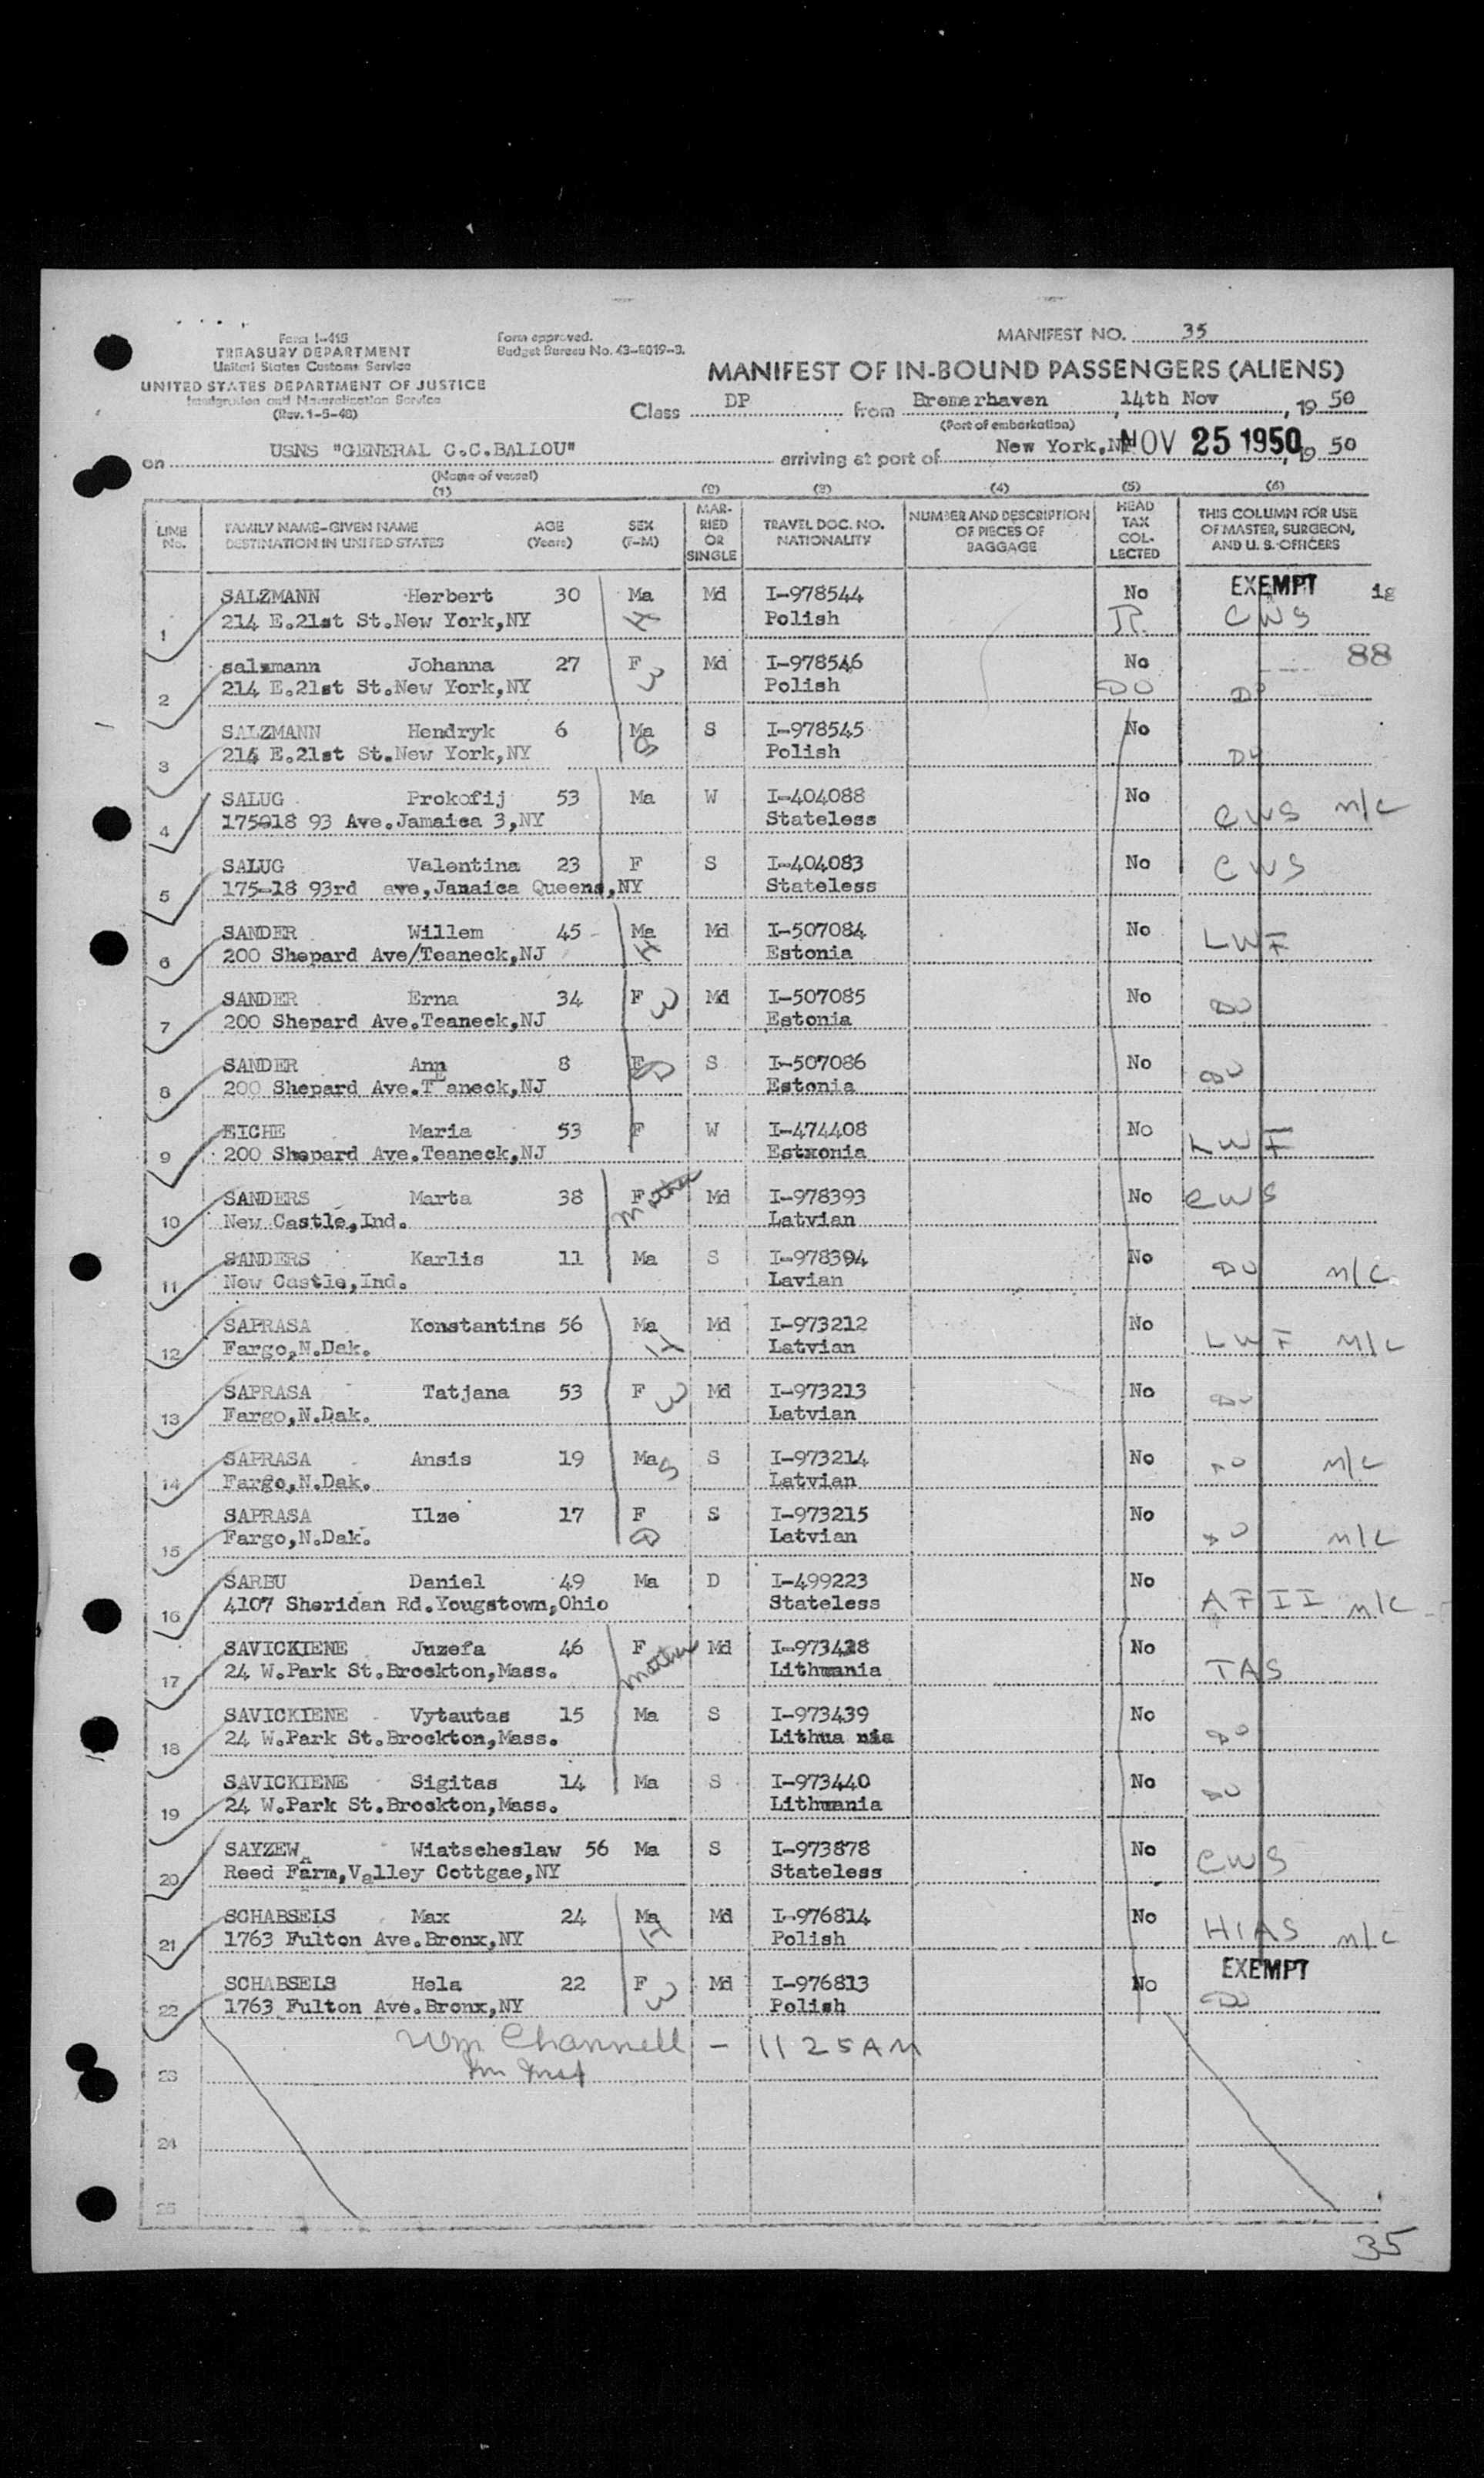 Form I-415
TREASURY DEPARTMENT
United States Customs Service
UNITED STATES DEPARTMENT OF JUSTICE
Immigration and Naturalization Service
(Rev. 1-5-48)
Form approved.
Budget Bureau No. 43-R019-3.
MANIFEST NO. 35
MANIFEST OF IN-BOUND PASSENGERS (ALIENS)
Class DP from Bremerhaven, 14th Nov, 19 50
(Port of embarkation)
on USNS "GENERAL C.C.BALLOU" arriving at port of New York, NOV 25 1950, 19 50
(Name of vessel)
(1) (2) (3) (4) (5) (6)
LINE No. FAMILY NAME-GIVEN NAME DESTINATION IN UNITED STATES AGE (Years) SEX (F-M) MAR-RIED OR SINGLE TRAVEL DOC. NO. NATIONALITY NUMBER AND DESCRIPTION OF PIECES OF BAGGAGE HEAD TAX COL-LECTED THIS COLUMN FOR USE OF MASTER, SURGEON, AND U. S. OFFICERS
SALZMANN Herbert 30 Ma Md I-978544 No EXEMPT
1 214 E.21st St.New York,NY H Polish CWS
salzmann Johanna 27 F Md I-978546 No 88
2 214 E.21st St.New York,NY W Polish DO DO
SALZMANN Hendryk 6 Ma S I-978545 No
3 214 E.21st St.New York,NY S Polish DO
SALUG Prokofij 53 Ma W I-404088 No
4 175018 93 Ave.Jamaica 3,NY Stateless CWS M/C
SALUG Valentina 23 F S I-404083 No
5 175-18 93rd ave,Jamaica Queens,NY Stateless CWS
SANDER Willem 45 Ma Md I-507084 No
6 200 Shepard Ave/Teaneck,NJ H Estonia LWF
SANDER Erna 34 F W Md I-507085 No
7 200 Shepard Ave.Teaneck,NJ Estonia DO
SANDER Ann 8 F D S I-507086 No
8 200 Shepard Ave.TEaneck,NJ Estonia DO
EICHE Maria 53 F W I-474408 No
9 200 Shepard Ave.Teaneck,NJ Estxonia LWF
SANDERS Marta 38 F Mother Md I-978393 No CWS
10 New Castle,Ind. Latvian
SANDERS Karlis 11 Ma S I-978394 No
11 New Castle,Ind. Lavian DO M/C
SAPRASA Konstantins 56 Ma Md I-973212 No
12 Fargo,N.Dak. H Latvian LWF M/C
SAPRASA Tatjana 53 F W Md I-973213 No
13 Fargo,N.Dak. Latvian DO
SAPRASA Ansis 19 Ma S S I-973214 No
14 Fargo,N.Dak. Latvian DO M/C
SAPRASA Ilze 17 F S I-973215 No
15 Fargo,N.Dak. D Latvian DO M/C
SARBU Daniel 49 Ma D I-499223 No
16 4107 Sheridan Rd.Yougstown,Ohio Stateless AFII M/C
SAVICKIENE Juzefa 46 F Mother Md I-973428 No
17 24 W.Park St.Brockton,Mass. Lithuania TAS
SAVICKIENE Vytautas 15 Ma S I-973439 No
18 24 W.Park St.Brockton,Mass. Lithua nia DO
SAVICKIENE Sigitas 14 Ma S I-973440 No
19 24 W.Park St.Brockton,Mass. Lithuania DO
SAYZEW Wiatscheslaw 56 Ma S I-973878 No
20 Reed Farm,Valley Cottgae,NY Stateless CWS
SCHABSELS Max 24 Ma Md I-976814 No
21 1763 Fulton Ave.Bronx,NY H Polish HIAS M/C
SCHABSELS Hela 22 F Md I-976813 No EXEMPT
22 1763 Fulton Ave.Bronx,NY W Polish DO
Wm Channell - 11 25 AM
23 Im Inst
24
25
35